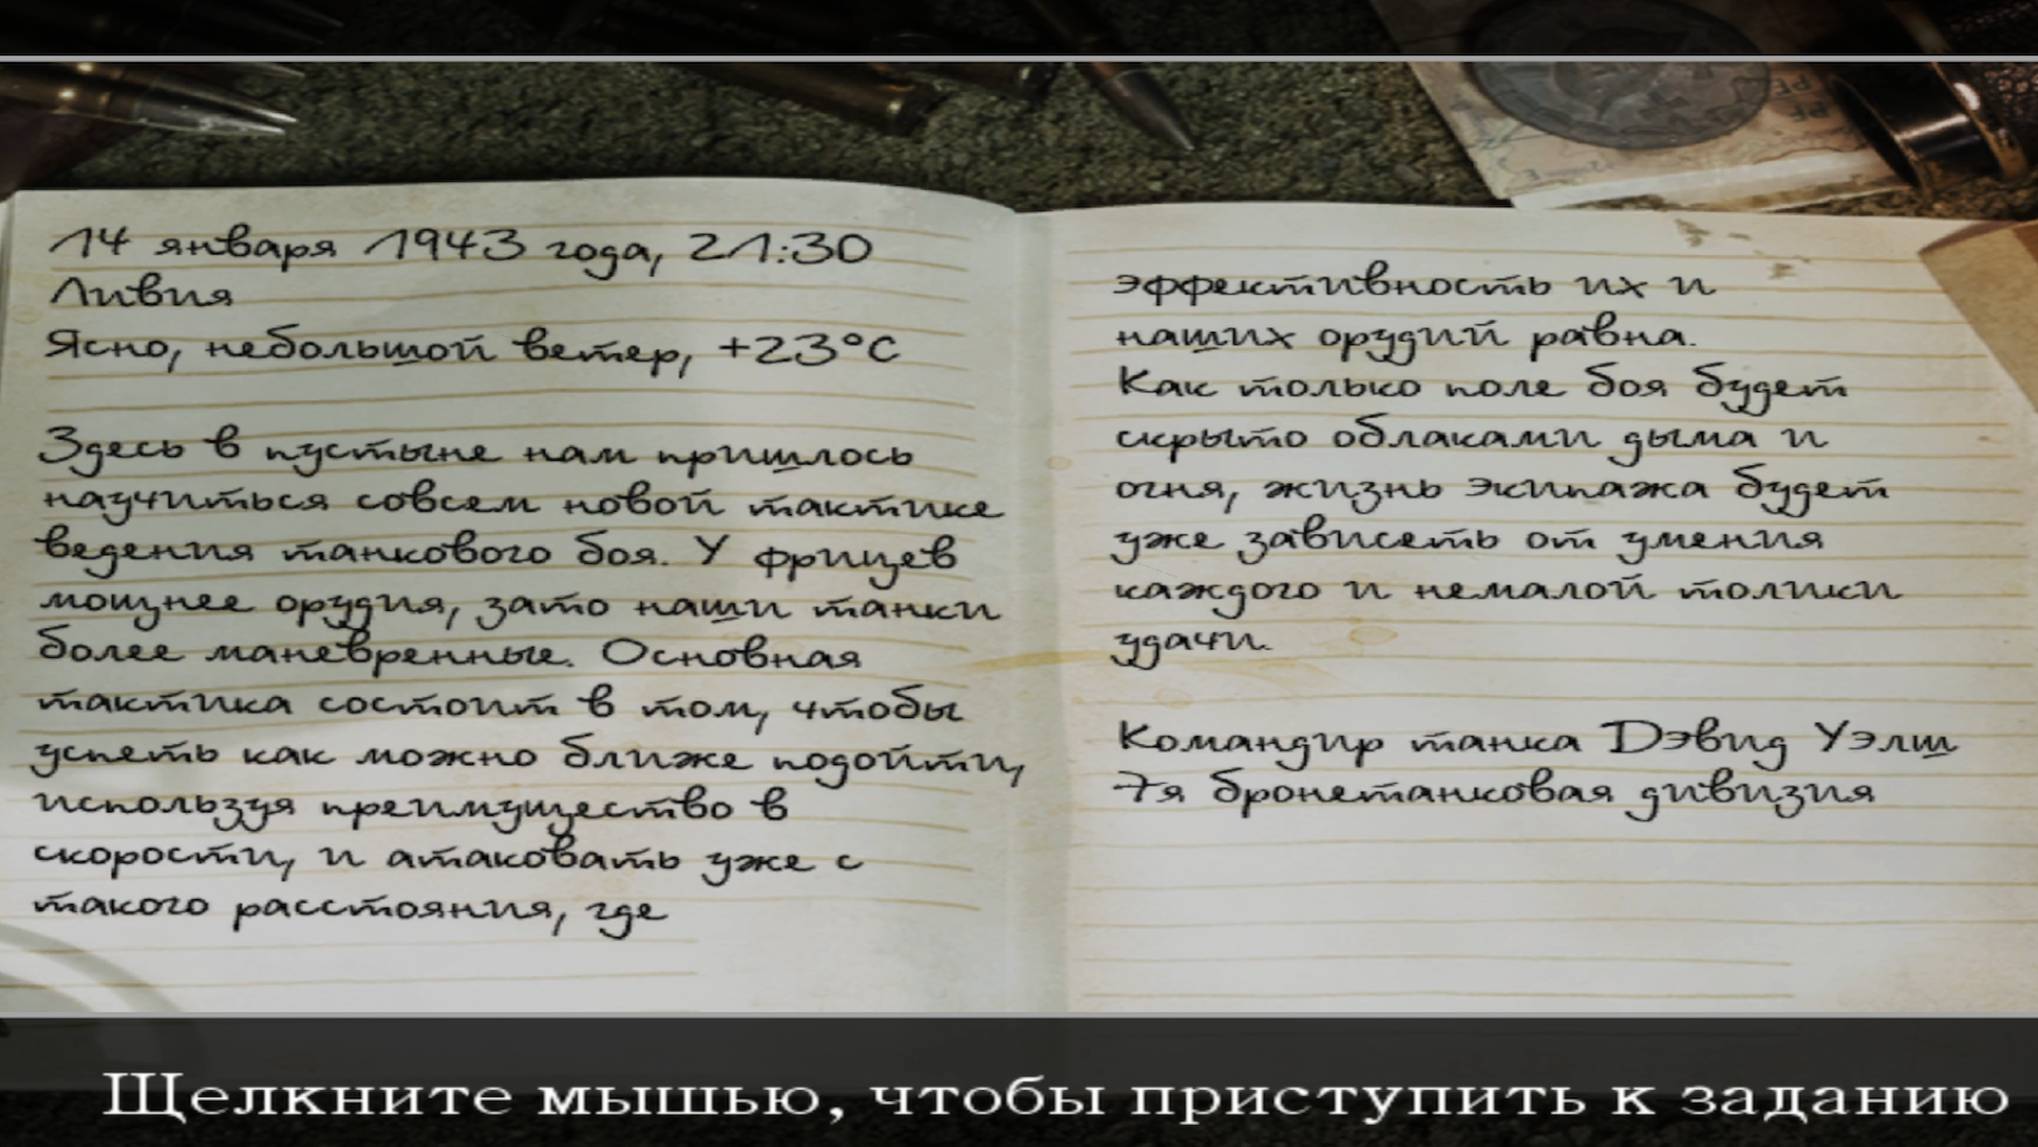 14 января 1943 года, 21:30
Ливия
Ясно, небольшой ветер, +23°С
Здесь в пустыне нам пришлось
научиться совсем новой тактике
ведения танкового боя. У фрицев
мощнее орудия, зато наши танки
более маневренные. Основная
тактика состоит в том, чтобы
успеть как можно ближе подойти,
используя преимущество в
скорости, и атаковать уже с
такого расстояния, где
эффективность их и
наших орудий равна.
Как только поле боя будет
скрыто облаками дыма и
огня, жизнь экипажа будет
уже зависеть от умения
каждого и немалой толики
удачи.
Командир танка Дэвид Уэлш
7я бронетанковая дивизия
Щелкните мышью, чтобы приступить к заданию